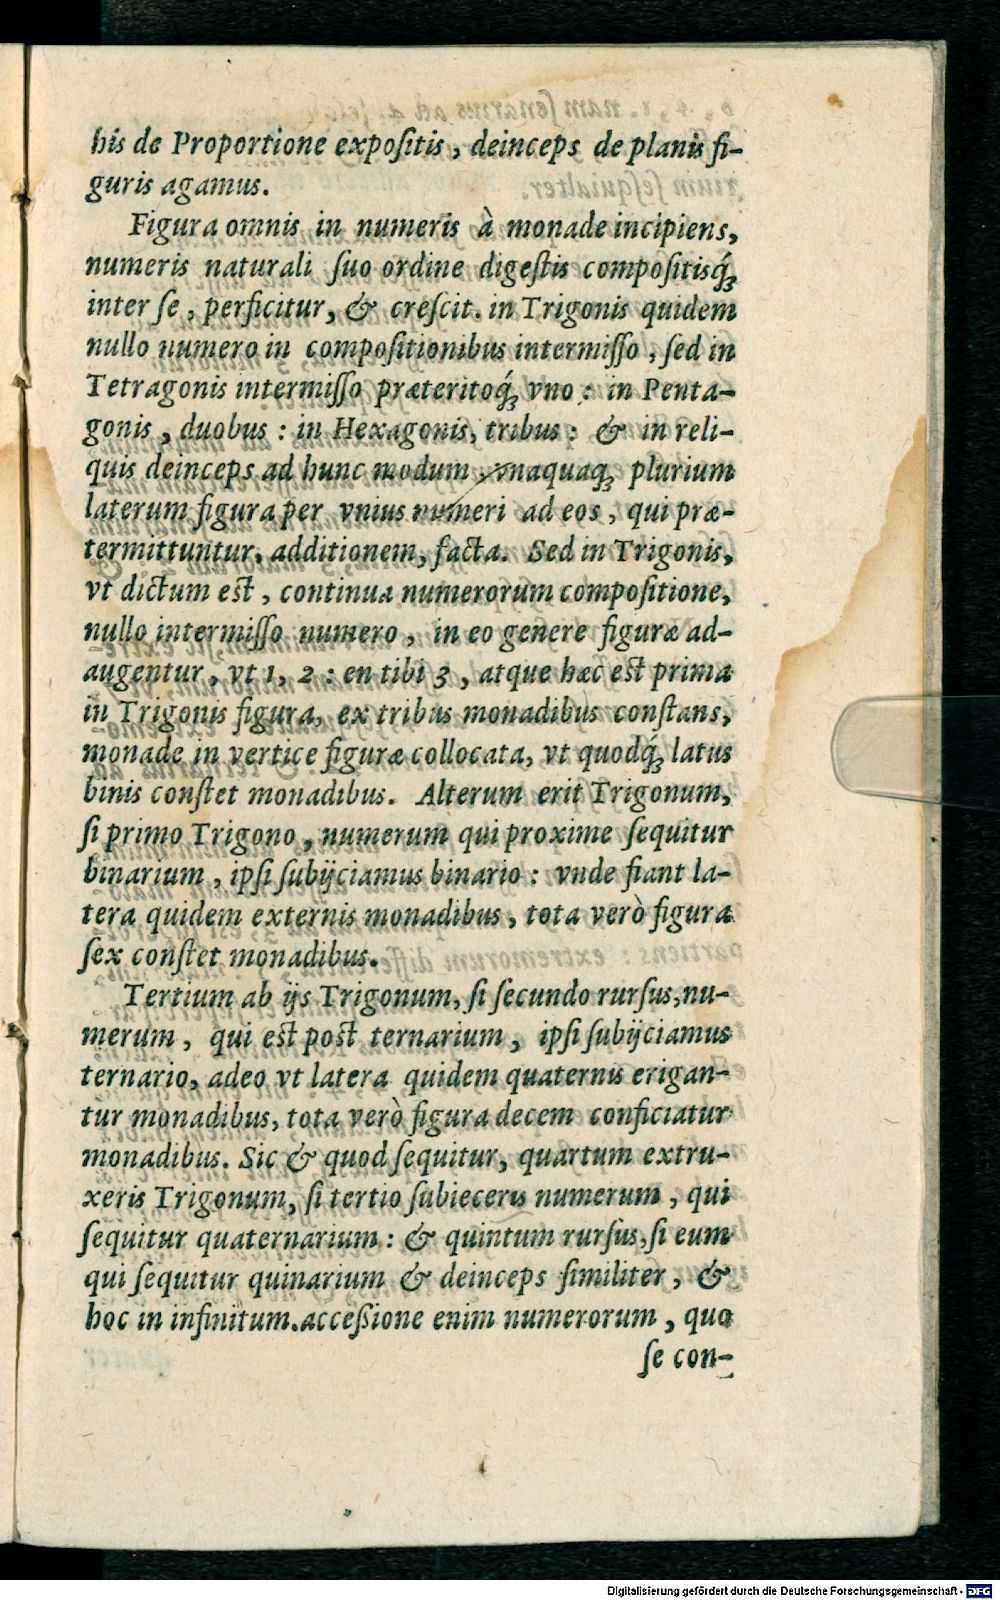 his de Proportione expositis, deinceps de planis fi-
guris agamus.
Figura omnis in numeris à monade incipiens,
numeris naturali suo ordine digestis compositisq́;
inter se, perficitur, & crescit. in Trigonis quidem
nullo numero in compositionibus intermisso, sed in
Tetragonis intermisso præteritoq́; vno: in Penta-
gonis, duobus: in Hexagonis, tribus: & in reli-
quis deinceps ad hunc modum, vnaquaq; plurium
laterum figura per vnius numeri ad eos, qui præ-
termittuntur, additionem, facta. Sed in Trigonis,
vt dictum est, continua numerorum compositione,
nullo intermisso numero, in eo genere figuræ ad-
augentur, vt 1, 2: en tibi 3, atque hæc est prima
in Trigonis figura, ex tribus monadibus constans,
monade in vertice figuræ collocata, vt quodq́; latus
binis constet monadibus. Alterum erit Trigonum,
si primo Trigono, numerum qui proxime sequitur
binarium, ipsi subijciamus binario: vnde fiant la-
tera quidem externis monadibus, tota verò figura
sex constet monadibus.
Tertium ab ijs Trigonum, si secundo rursus, nu-
merum, qui est post ternarium, ipsi subijciamus
ternario, adeo vt latera quidem quaternis erigan-
tur monadibus, tota verò figura decem conficiatur
monadibus. Sic & quod sequitur, quartum extru-
xeris Trigonum, si tertio subieceris numerum, qui
sequitur quaternarium: & quintum rursus, si eum
qui sequitur quinarium & deinceps similiter, &
hoc in infinitum. accessione enim numerorum, quo
se con-
Digitalisierung gefördert durch die Deutsche Forschungsgemeinschaft - DFG